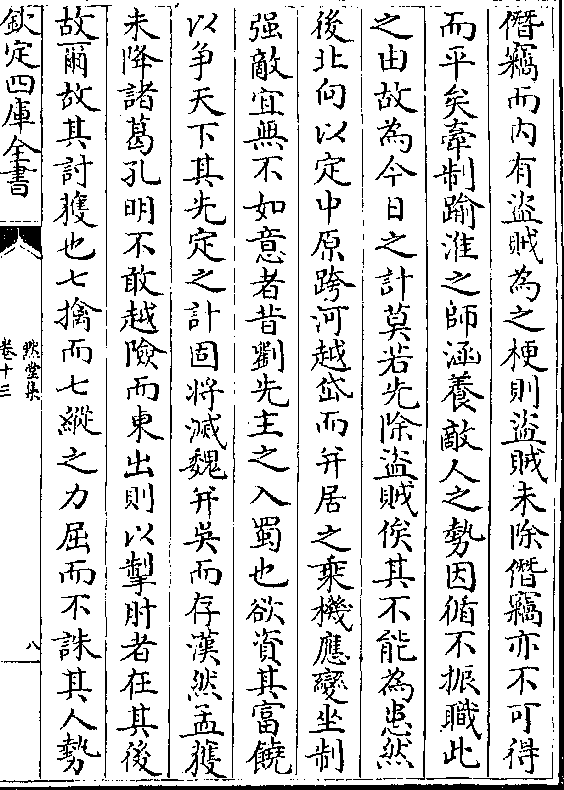 僭竊而内有盜賊為之梗則盜賊未除僭竊亦不可得
而平矣牽制踰淮之師涵養敵人之勢因循不振職此
之由故為今日之計莫若先除盜賊俟其不能為患然
後北向以定中原跨河越岱而并居之乘機應變坐制
强敵宜無不如意者昔劉先主之入蜀也欲資其富饒
以争天下其先定之計固將滅魏并吳而存漢然孟獲
未降諸葛孔明不敢越險而東出則以掣肘者在其後
故爾故其討獲也七擒而七縱之力屈而不誅其人勢
欽定四庫全書
默堂集
卷十三
八